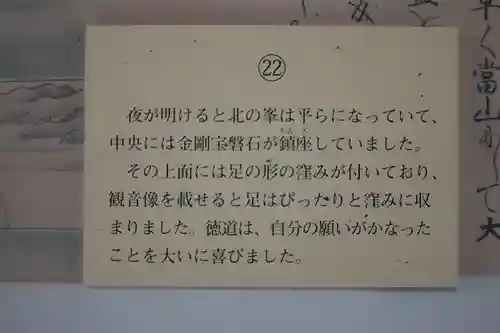 ㉒
夜が明けると北の峯は平らになっていて、
中央には金剛宝磐石が鎮座していました。
その上面には足の形の窪みが付いており、
観音像を載せると足はぴったりと窪みに収
まりました。徳道は、自分の願いがかなった
ことを大いに喜びました。